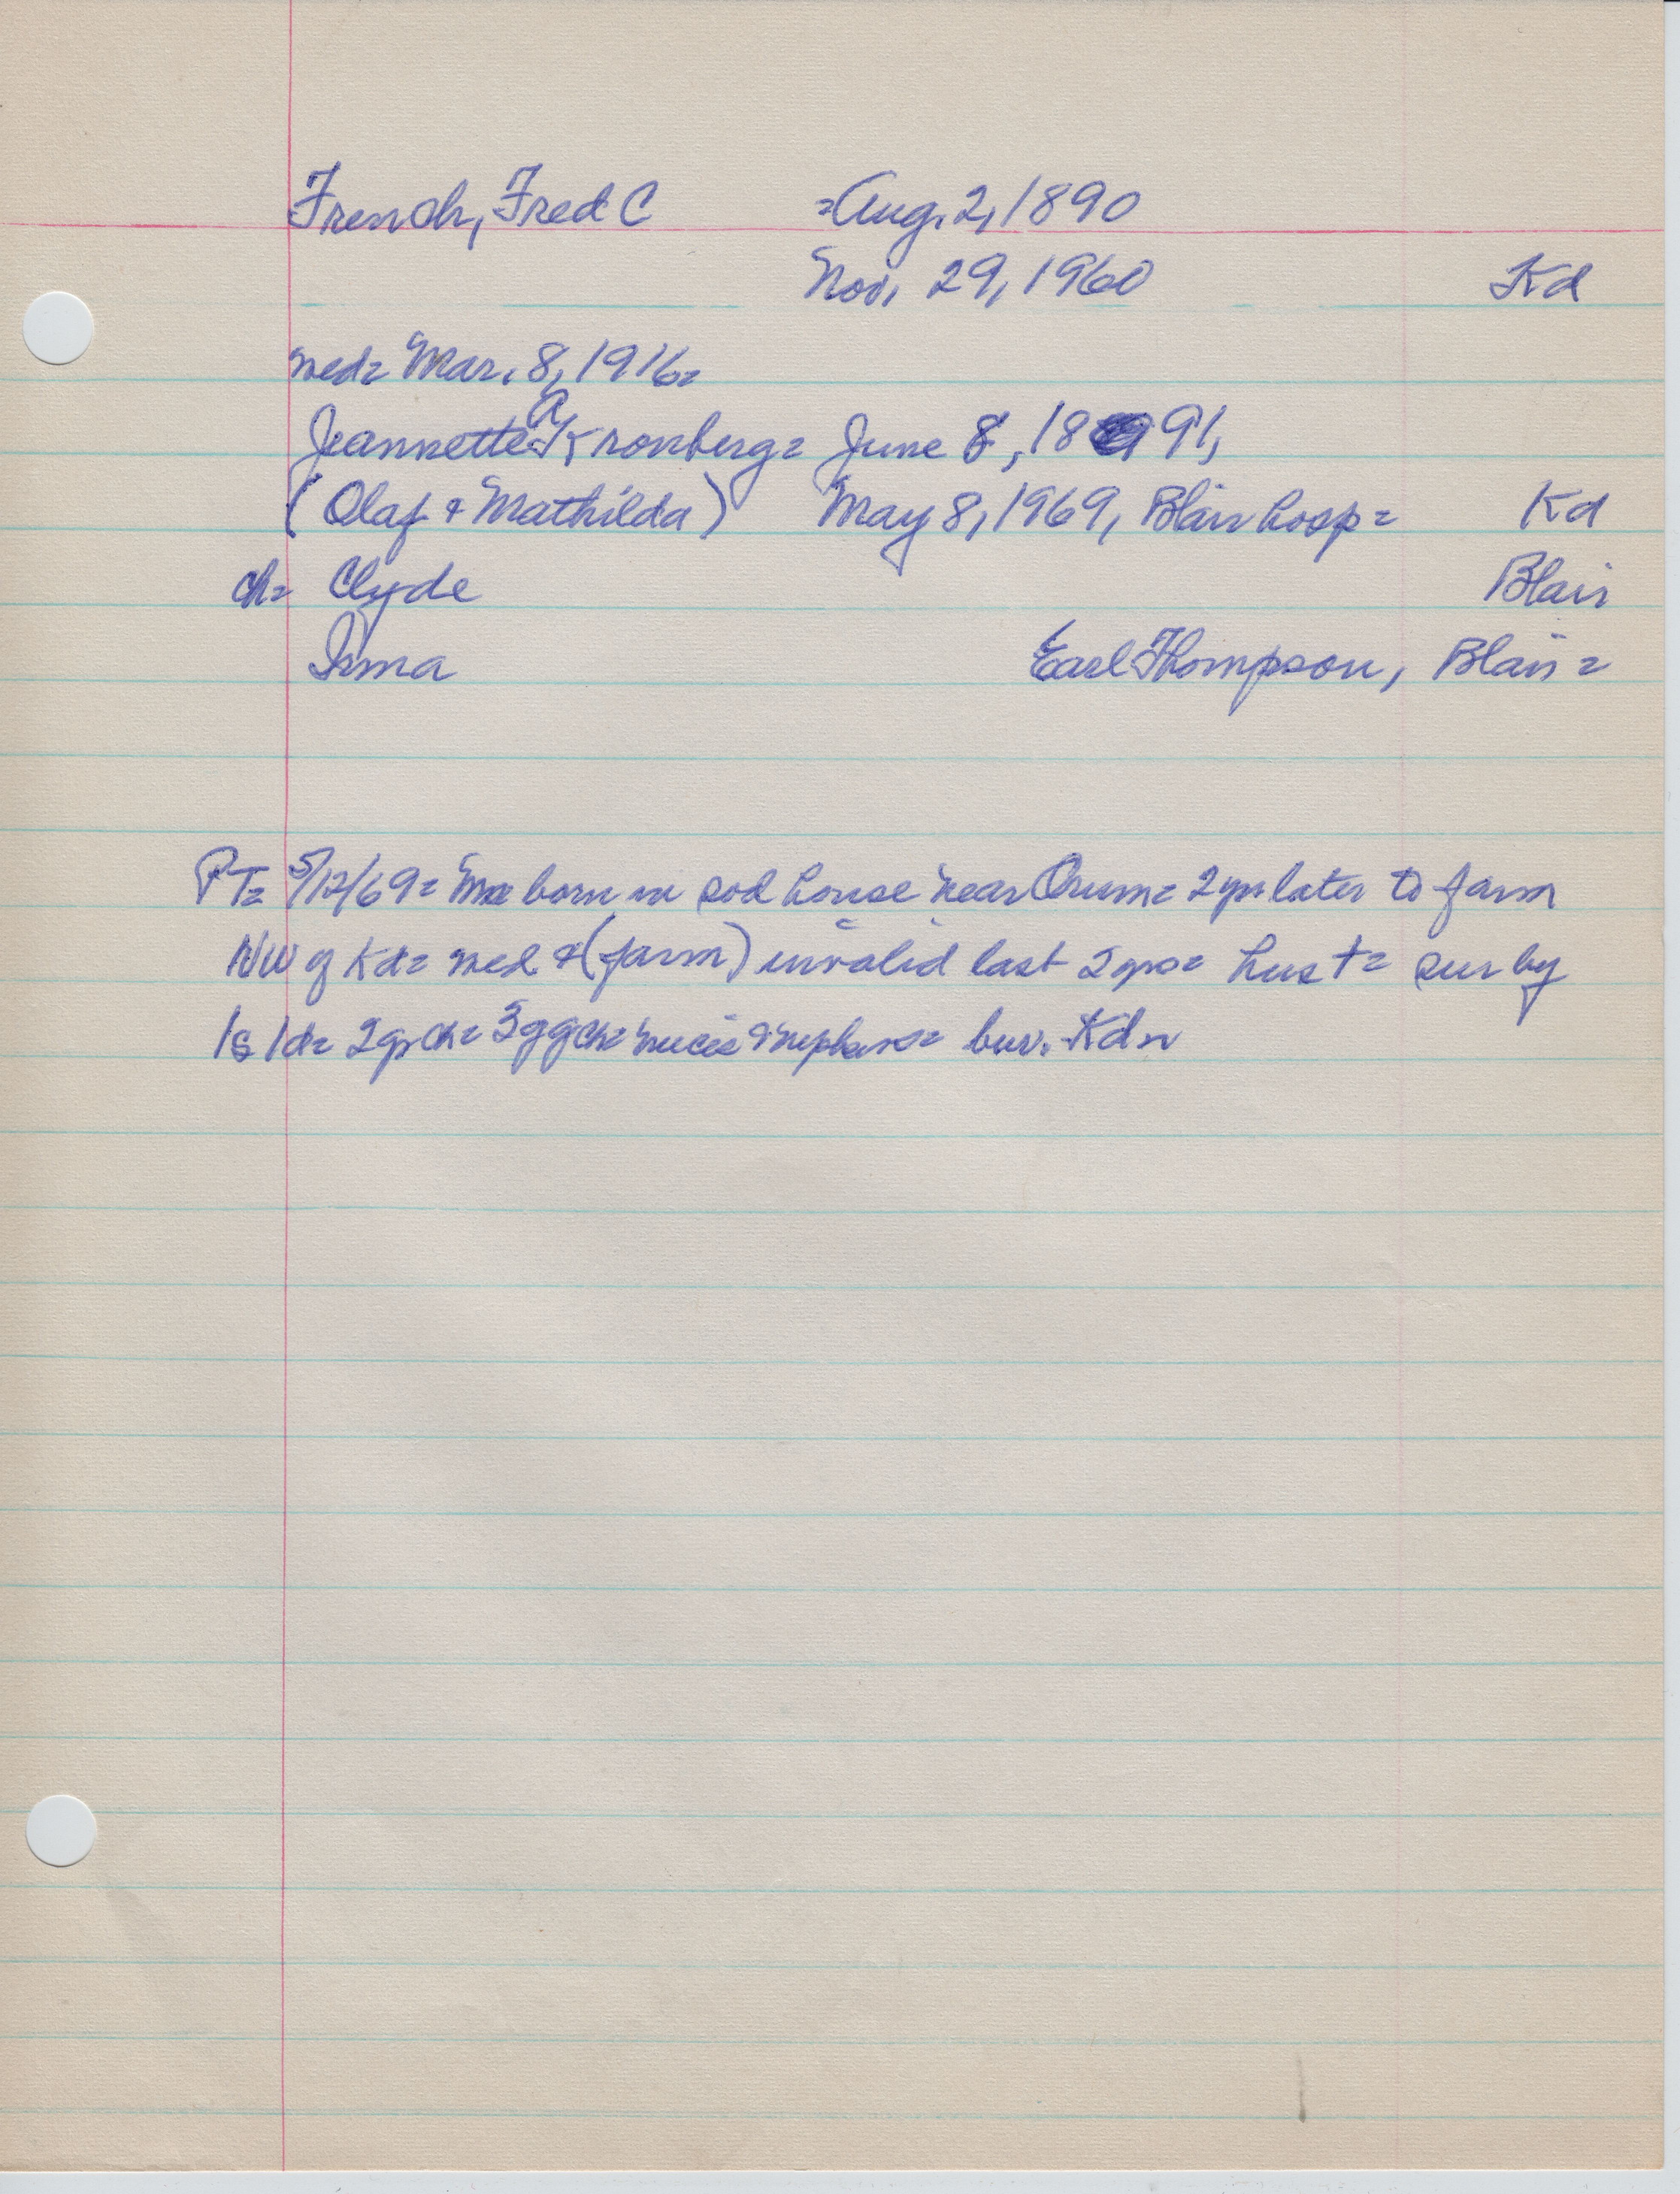 French, Fred C =Aug. 2, 1890
Nov. 29, 1960 Kd
med= Mar. 8, 1916=
Jeannette A Kronberg= June 8, 1891,
(Olaf & Mathilda) May 8, 1969, Blair hosp= Kd
ch= Clyde Blair
Irma Earl Thompson, Blair=
PT= 5/12/69= born in sod house near Orum= 2 yrs later to farm
NW of Kd= med & (farm) invalid last 2 yrs= hus †= sur by
1s 1d= 2 gr ch= 3 ggch= neices & nephews= bur. Kdn